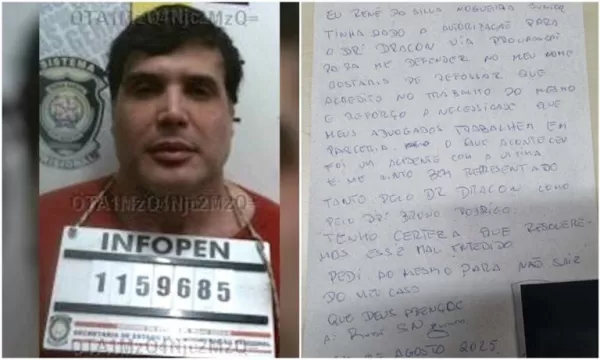 OTA1MzQ4Njc2MzQ=
SISTEMA
OTA1MzQ4Njc2MzQ=
INFOPEN
1159685
SECRETARIA DE ESTADO
OTA1MzQ4Njc2MzQ=
EU RENÊ DA SILVA NOGUEIRA JUNIOR
TINHA DADO A AUTORIZAÇÃO PARA
O DR DRACON VIA PROCURAÇÃO
PARA ME DEFENDER AO MEU NOME
GOSTARIA DE REFORÇAR QUE
ACREDITO NO TRABALHO DO MESMO
E REFORÇO A NECESSIDADE QUE
MEUS ADVOGADOS TRABALHEM EM
PARCERIA. O QUE ACONTECEU
FOI UM ACIDENTE COM A VITIMA
E ME SINTO BEM REPRESENTADO
TANTO PELO DR DRACON COMO
PELO DR BRUNO RODRIGO.
TENHO CERTEZA QUE RESOLVERE-
MOS ESSE MAL ENTEDIDO
PEDI AO MESMO PARA NÃO SAIR
DO MEU CASO
QUE DEUS ABENÇOE
A:
AGOSTO 2025